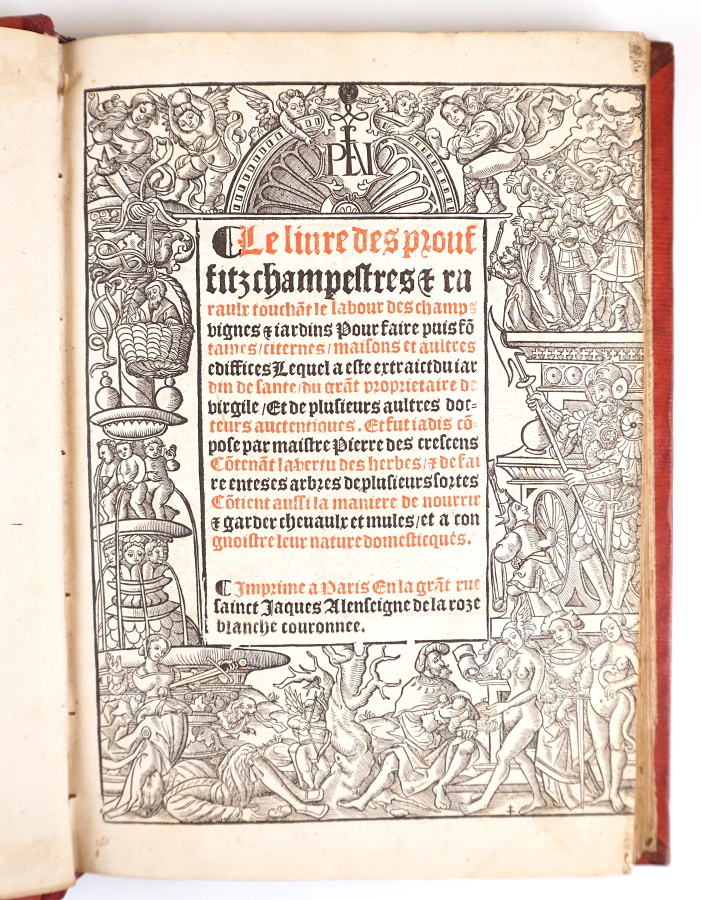 PLN
¶ Le liure des prouf
fitz champestres & ru
raulx touchãt le labour des champs
vignes & iardins Pour faire puis fõ
taines/citernes/maisons et aultres
ediffices Lequel a este extraict du iar
din de sante/du grãt proprietaire de
virgile/Et de plusieurs aultres doc=
teurs auctentiques. Et fut iadis cõ
pose par maistre Pierre des crescens
Cõtenãt la vertu des herbes/& de fai
re enteses arbres de plusieurs sortes
Cõtient aussi la maniere de nourrir
& garder cheuaulx et mules/et a con
gnoistre leur nature domesticques.
¶ Imprime a Paris En la grãt rue
sainct Jaques A lenseigne de la roze
blanche couronnee.